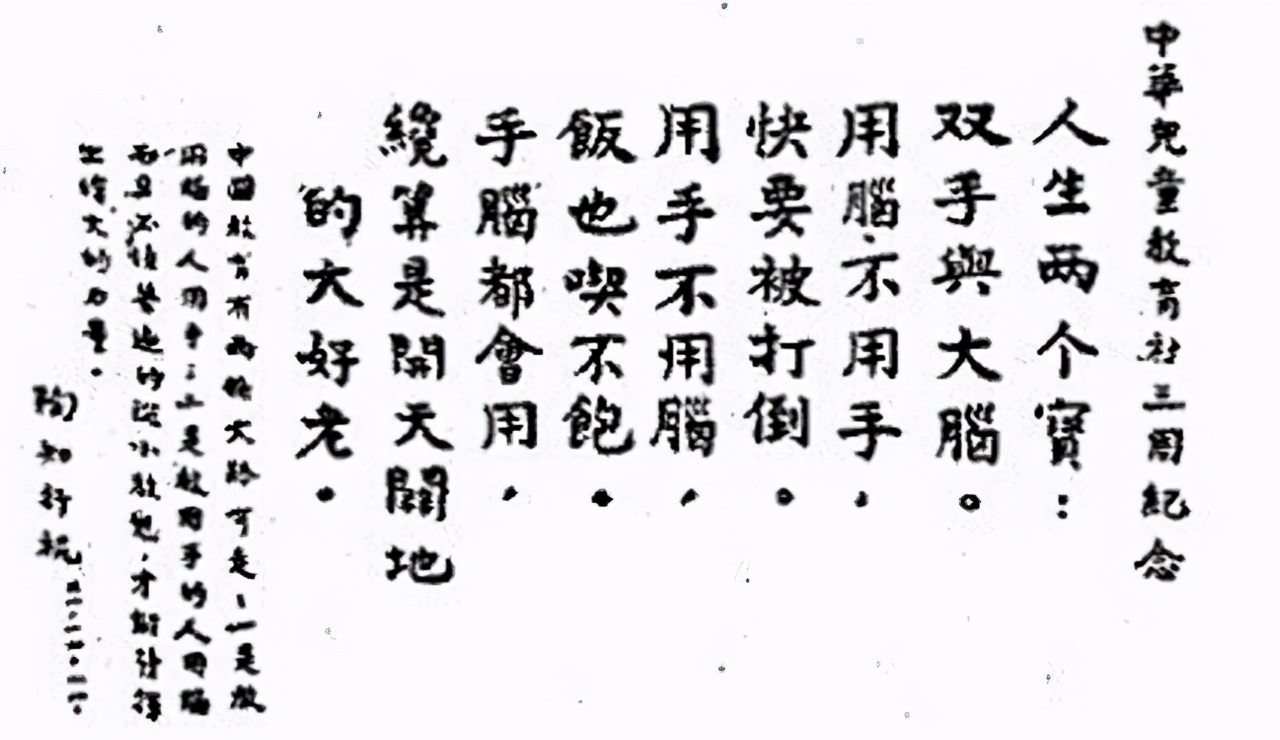 中華兒童教育社三周紀念
人生两个寶：
双手與大腦。
用腦不用手，
快要被打倒。
用手不用腦，
飯也喫不飽。
手腦都會用，
纔算是開天闢地
的大好老。
中國教育有兩條大路可走：一是教
用腦的人用手；二是教用手的人用腦
而且還該普遍的從小教起，才能發揮
出偉大的力量。
陶知行祝